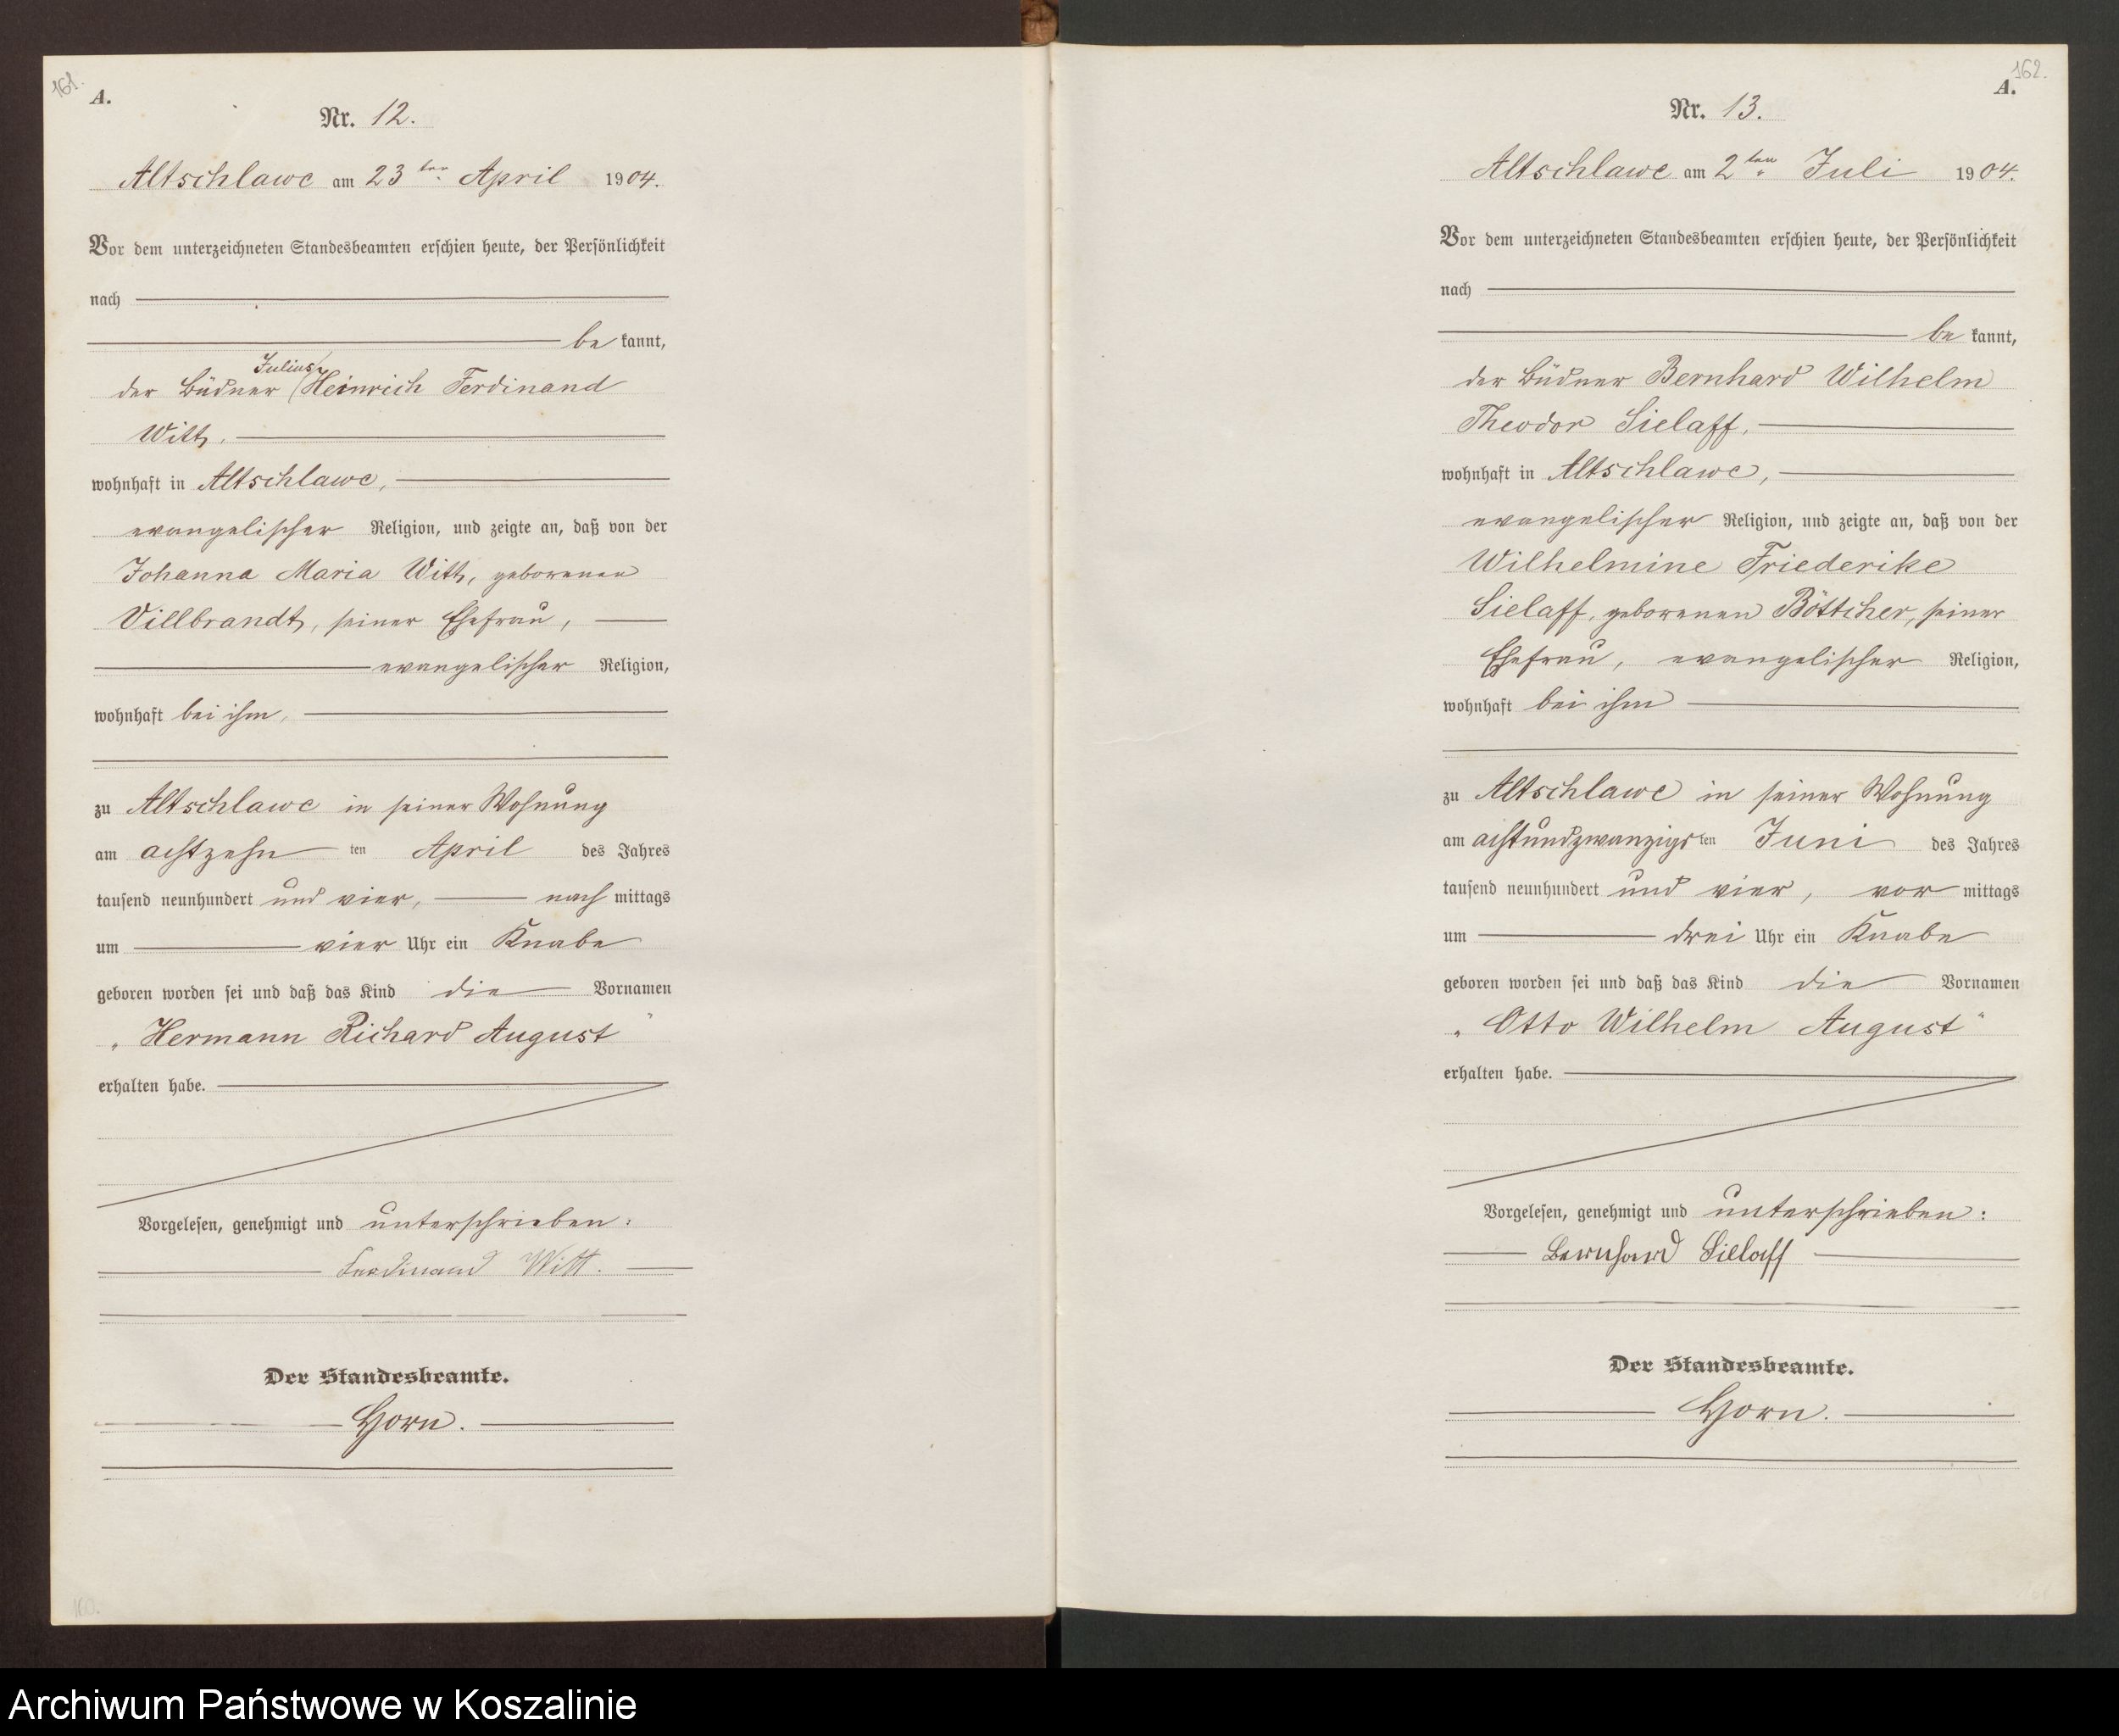 161.
A.
Nr. 12.
Altschlawe am 23ten April 1904.
Vor dem unterzeichneten Standesbeamten erschien heute, der Persönlichkeit
nach
be kannt,
Julius
der Büdner Heinrich Ferdinand
Witt,
wohnhaft in Altschlawe,
evangelischer Religion, und zeigte an, daß von der
Johanna Maria Witt, geborenen
Villbrandt, seiner Ehefrau,
evangelischer Religion,
wohnhaft bei ihm,
zu Altschlawe in seiner Wohnung
am achtzehn ten April des Jahres
tausend neunhundert und vier, nach mittags
um vier Uhr ein Knabe
geboren worden sei und daß das Kind die Vornamen
„Hermann Richard August"
erhalten habe.
Vorgelesen, genehmigt und unterschrieben:
Ferdinand Witt.
Der Standesbeamte.
Horn.
160.
162.
A.
Nr. 13.
Altschlawe am 2ten Juli 1904.
Vor dem unterzeichneten Standesbeamten erschien heute, der Persönlichkeit
nach
be kannt,
der Büdner Bernhard Wilhelm
Theodor Sielaff,
wohnhaft in Altschlawe,
evangelischer Religion, und zeigte an, daß von der
Wilhelmine Friederike
Sielaff, geborenen Böttcher, seiner
Ehefrau, evangelischer Religion,
wohnhaft bei ihm
zu Altschlawe in seiner Wohnung
am achtundzwanzigs ten Juni des Jahres
tausend neunhundert und vier, vor mittags
um drei Uhr ein Knabe
geboren worden sei und daß das Kind die Vornamen
„Otto Wilhelm August"
erhalten habe.
Vorgelesen, genehmigt und unterschrieben:
Bernhard Sielaff
Der Standesbeamte.
Horn.
Archiwum Państwowe w Koszalinie